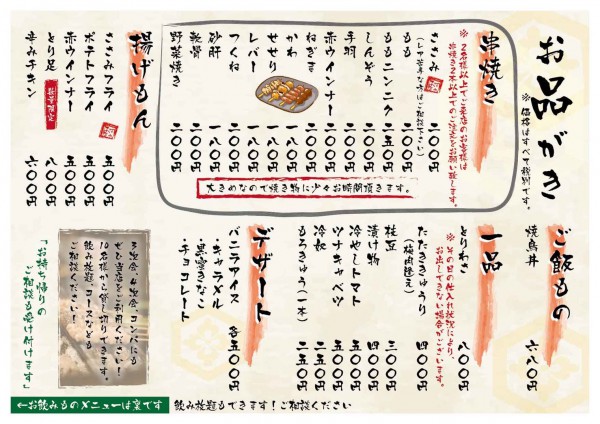 お品がき
※価格はすべて税別です。
串焼き
※2名様以上でご来店のお客様は
串焼き2本以上でのご注文をお願い致します。
ささみ 二〇〇円
(レア苦手な方はご相談下さい)
もも
ももニンニク
しんぞう
手羽
赤ウインナー
ねぎま
かわ
せせり
レバー
つくね
砂肝
軟骨
野菜焼き 二〇〇円
大きめなので焼き物に少々お時間頂きます。
揚げもん
ささみフライ 五〇〇円
ポテトフライ 五〇〇円
赤ウインナー 五〇〇円
とり足 八〇〇円
辛みチキン 六〇〇円
ご飯もの
焼鳥丼 六八〇円
一品
※その日の仕入れ状況により、
お出しできない場合がございます。
とりわさ 八〇〇円
たたききゅうり 四〇〇円
(梅肉 和え)
枝豆 三〇〇円
漬け物 四〇〇円
冷やしトマト 三五〇円
ツナキャベツ 三五〇円
冷奴 二五〇円
もろきゅう(一本) 二五〇円
デザート
バニラアイス 各五〇〇円
・キャラメル
・黒蜜きなこ
・チョコレート
3次会、4次会、コンパにも
ぜひ当店をご利用ください!
10名様から貸し切りできます。
飲み放題、コースなども
ご相談ください!
「お持ち帰りの
ご相談も受け付けます」
←お飲みものメニューは裏です
飲み放題もできます!ご相談ください